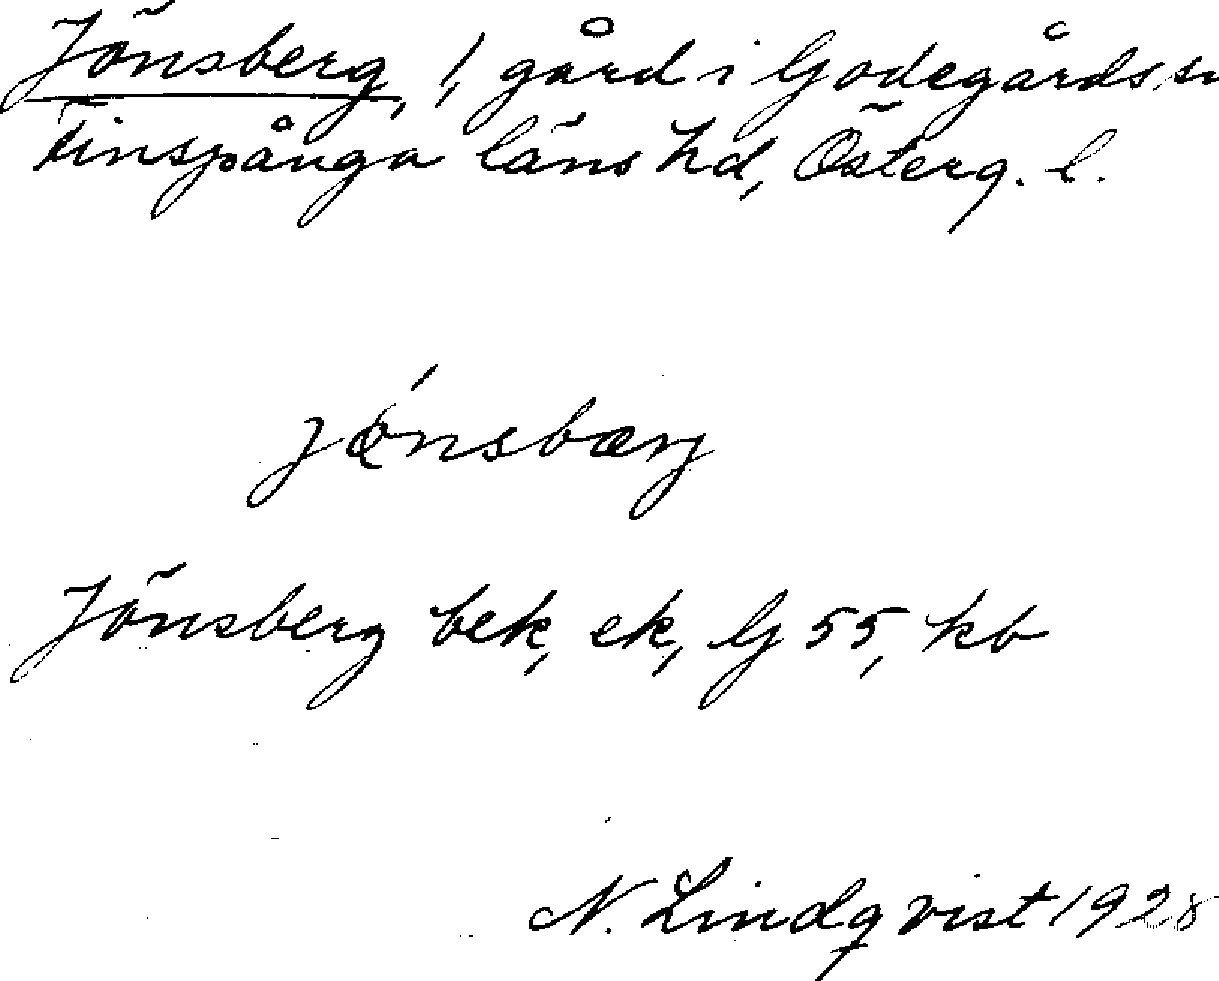 Jönsberg, 1, gård i Godegårds sn
Finspånga läns hd, Österg. l.
Jönsberg bek, ek, G 55, kb
N. Lindqvist 1928